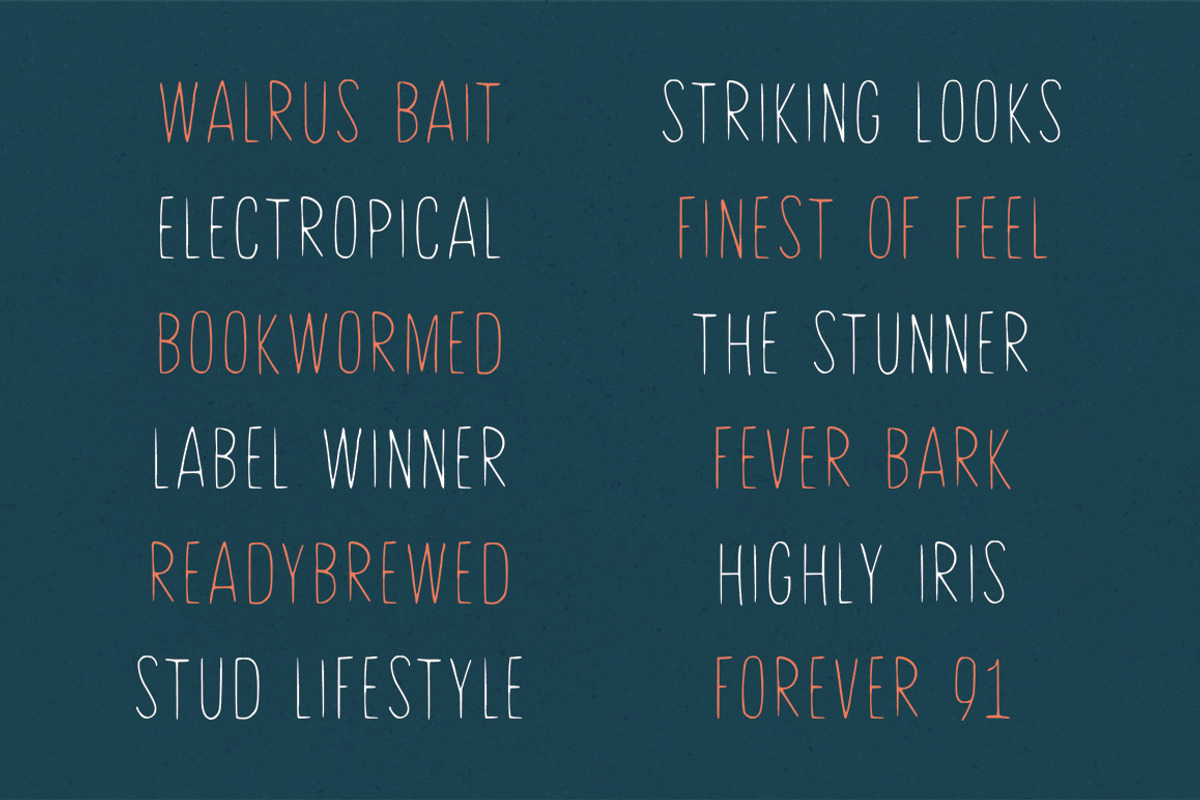 WALRUS BAIT
ELECTROPICAL
BOOKWORMED
LABEL WINNER
READYBREWED
STUD LIFESTYLE
STRIKING LOOKS
FINEST OF FEEL
THE STUNNER
FEVER BARK
HIGHLY IRIS
FOREVER 91